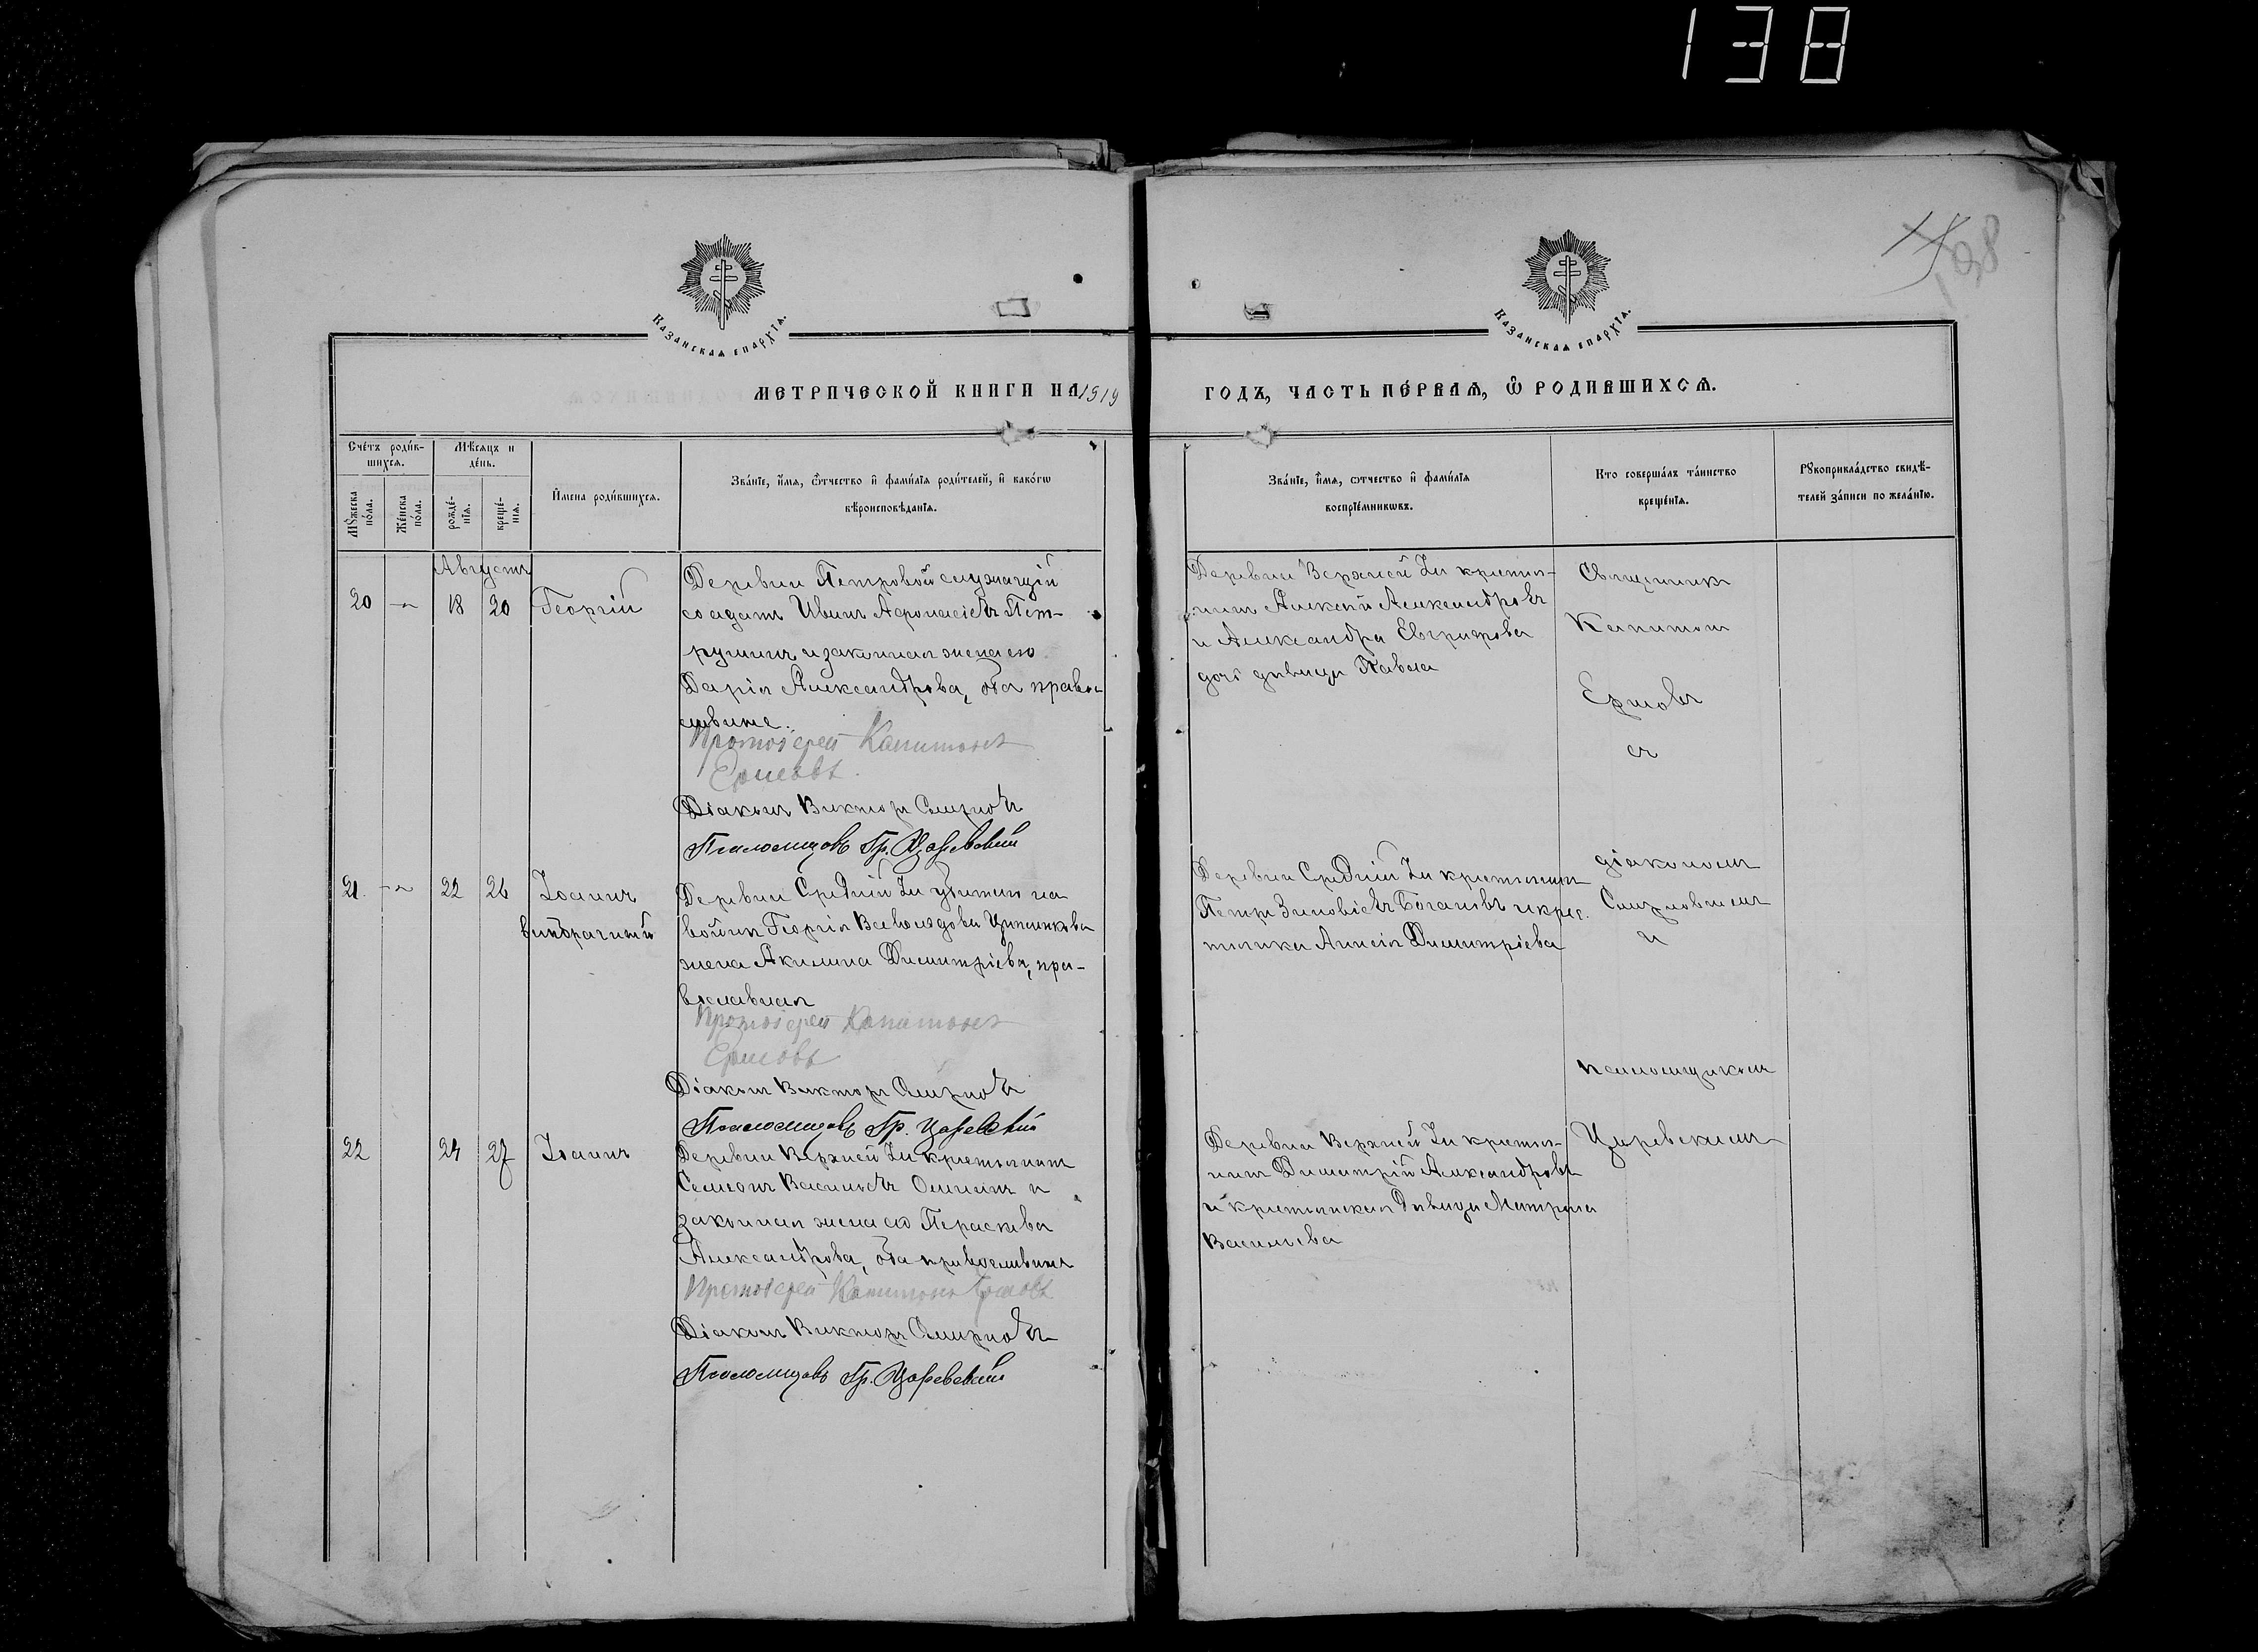 138
138
КАЗАНСКАЯ ЕПАРХІЯ.
КАЗАНСКАЯ ЕПАРХІЯ.
МЕТРИЧЕСКОЙ КНИГИ НА 1919
ГОДЪ, ЧАСТЬ ПЕ́РВАЯ, Ѽ РОДИВШИХСЯ.
Счéтъ роди́вшихся.
Мѣсяцъ и дéнь.
Мꙋ́жеска по́ла.
Же́нска по́ла.
рожде́нїѧ.
креще́нїѧ.
И҆мена роди́вшихся.
Зва́нїе, и҆́мя, ѻ҆́тчество и҆ фами́лїя роди́телей, и҆ како́гѡ
вѣроисповѣ́данїя.
Зва́нїе, и҆́мя, ѻ҆́тчество и҆ фами́лїя
воспрїе́мникѡвъ.
Кто соверша́лъ та́инство
креще́нїя.
Рꙋкоприкла́дство свидѣ́-
телей за́писи по жела́нїю.
Августъ
20 — 18 20 Георгій
Деревни Петровой служащій
солдатъ Иванъ Афонасіевъ Пет-
рушинъ и законная жена его
Дарія Александрова, оба право
славные.
Протоіерей Капитонъ
Ермовъ.
Діаконъ Викторъ Смирновъ
Псаломщикъ Гр. Царевскій
Деревни Верхней Іи крестья-
нинъ Алексей Александровъ
и Александра Евграфова
дочь девица Павла
Священникъ
Капитонъ
Ермовъ
съ
21. — 22 26 Іоаннъ
внебрачный
Деревни Средній Іи убитаго на
войнѣ Георгія Всеволодова
жена Акилина Димитріева, пра-
вославная
Протоіерей Капитонъ
Ермовъ
Діаконъ Викторъ Смирновъ
Псаломщикъ Гр. Царевскій
Деревни Средній Іи крестьянинъ
Петръ Зиновіевъ и крес.
тьянка Анисія Димитріева
діакономъ
Смирновымъ
и
псаломщикомъ
Царевскимъ
22 24 27 Іоаннъ
Деревни Верхней Іи крестьянинъ
Семіонъ Васильевъ и
законная жена его Параскева
Александрова, оба православные
Протоіерей Капитонъ Ермовъ
Діаконъ Викторъ Смирновъ
Псаломщикъ Гр. Царевскій
Деревни Верхней Іи крестья-
нинъ Димитрій Александровъ
и крестьянская девица Матрона
Васильева